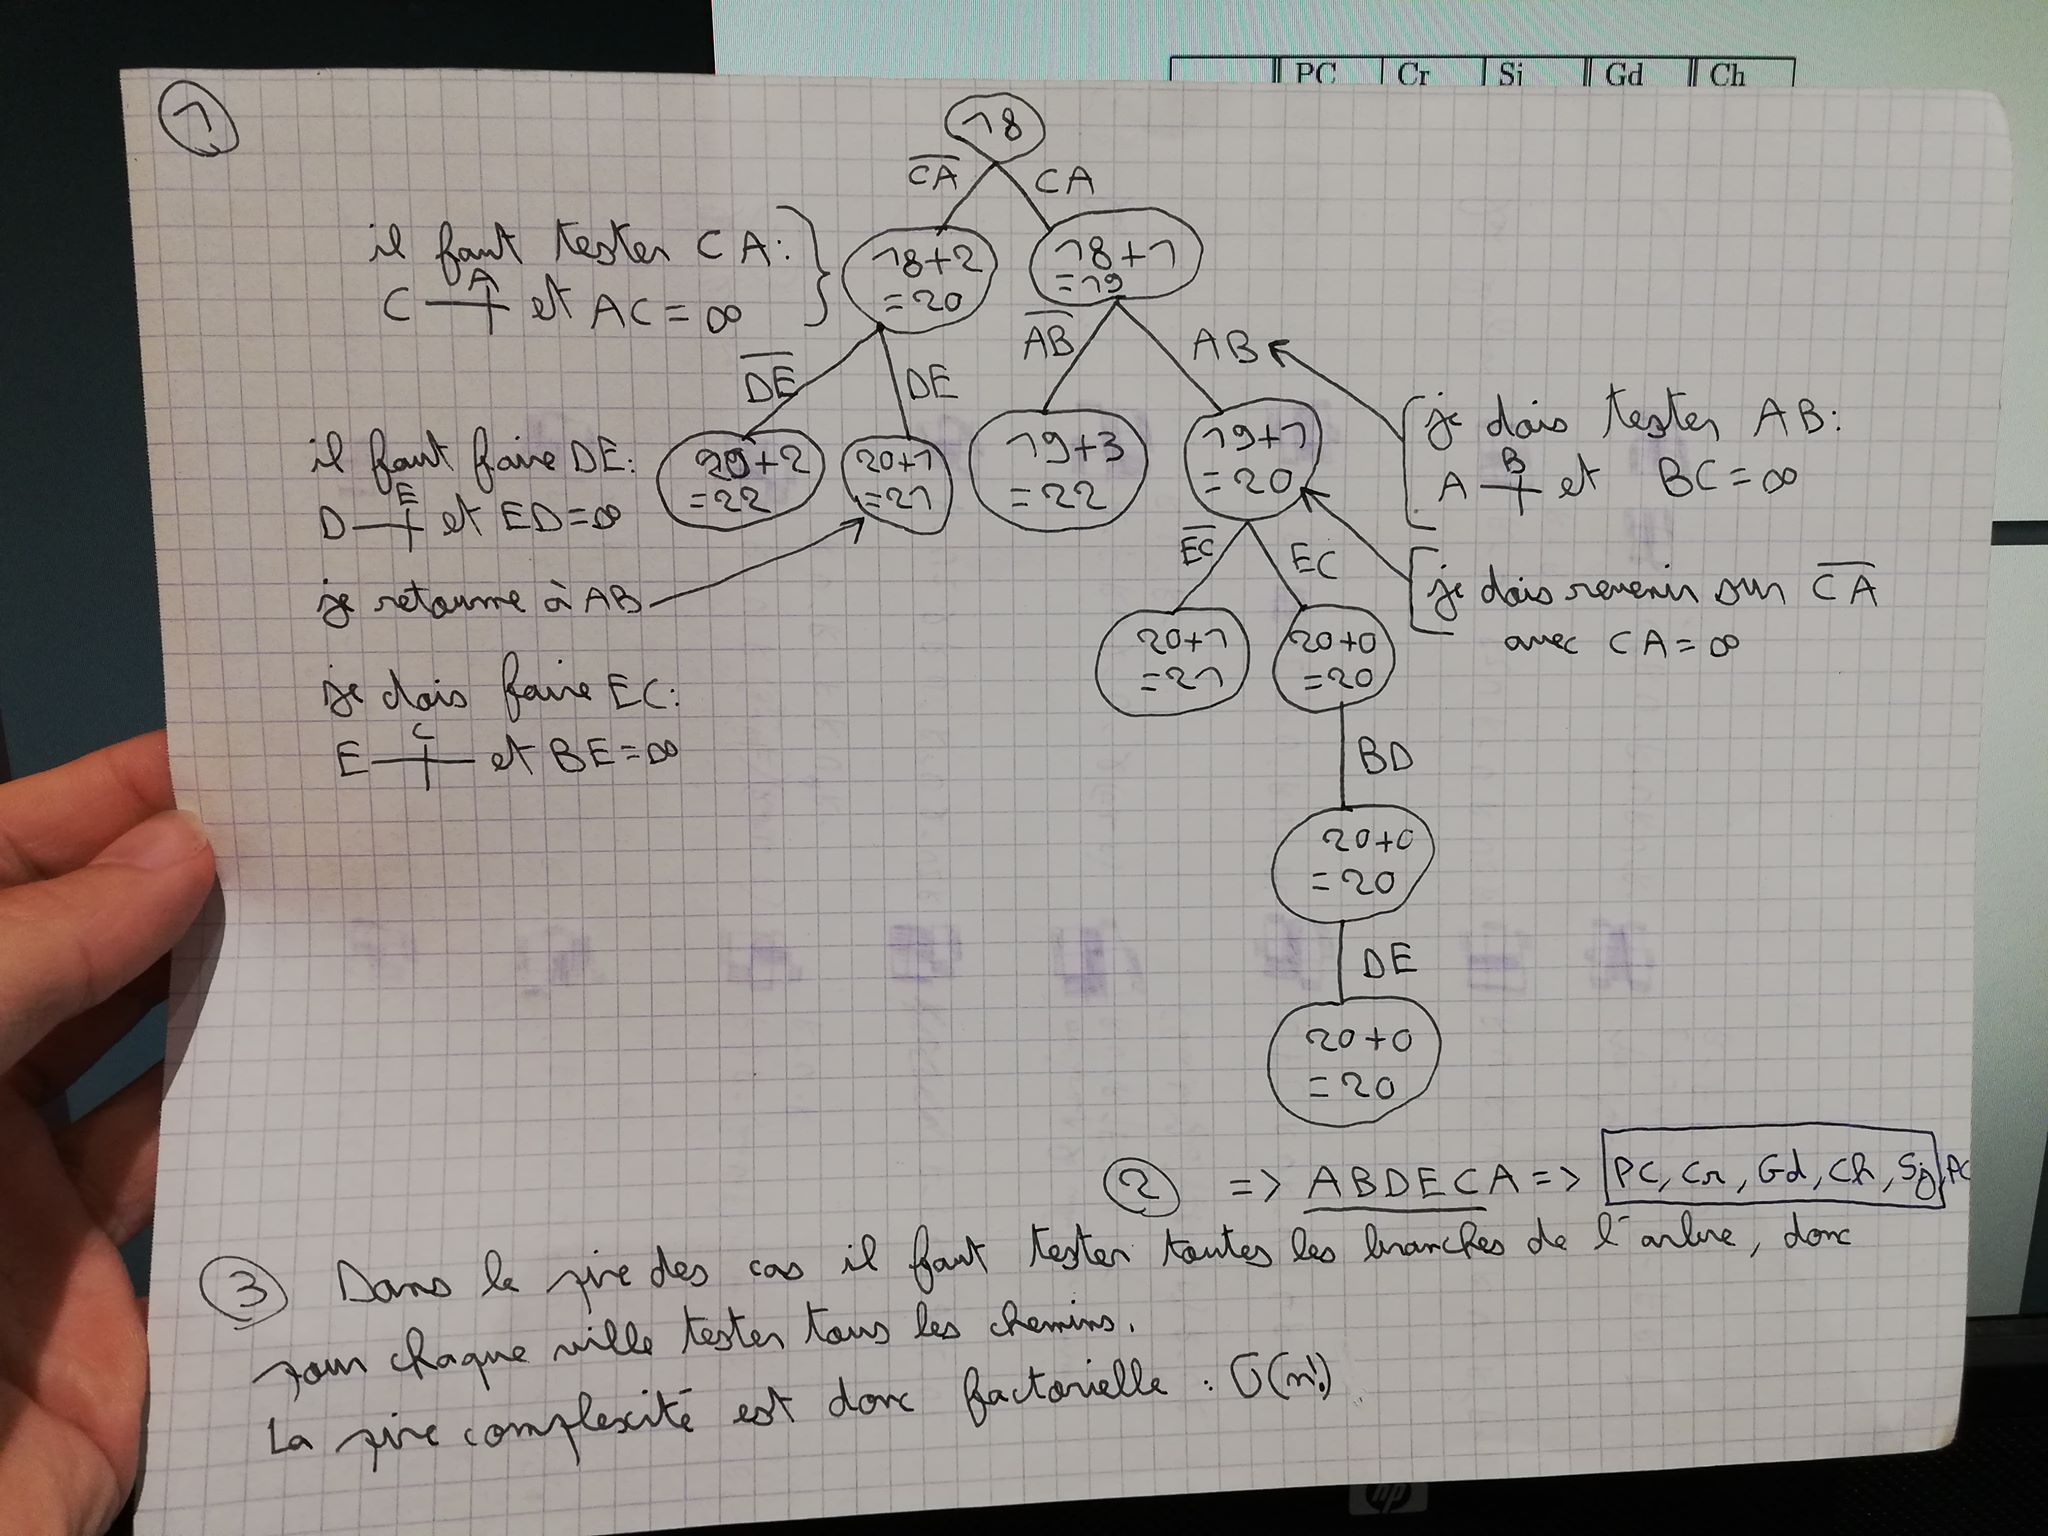 PC Cr Si Gd Ch
1
18
C̅A̅ CA
il faut tester CA:
C A et AC = ∞
18+2
= 20
18+1
= 19
D̅E̅ DE
A̅B̅ AB
il faut faire DE:
D E et ED = ∞
20+2
= 22
20+1
= 21
19+3
= 22
19+1
= 20
je dois tester AB:
A B et BC = ∞
je retourne à AB
E̅C̅ EC
je dois revenir sur C̅A̅
avec CA = ∞
je dois faire EC:
E C et BE = ∞
20+1
= 21
20+0
= 20
BD
20+0
= 20
DE
20+0
= 20
2 => ABDECA => PC, Cr, Gd, Ch, Si, PC
3 Dans le pire des cas il faut tester toutes les branches de l'arbre, donc
pour chaque ville tester tous les chemins.
La pire complexité est donc factorielle : O(n!)
hp